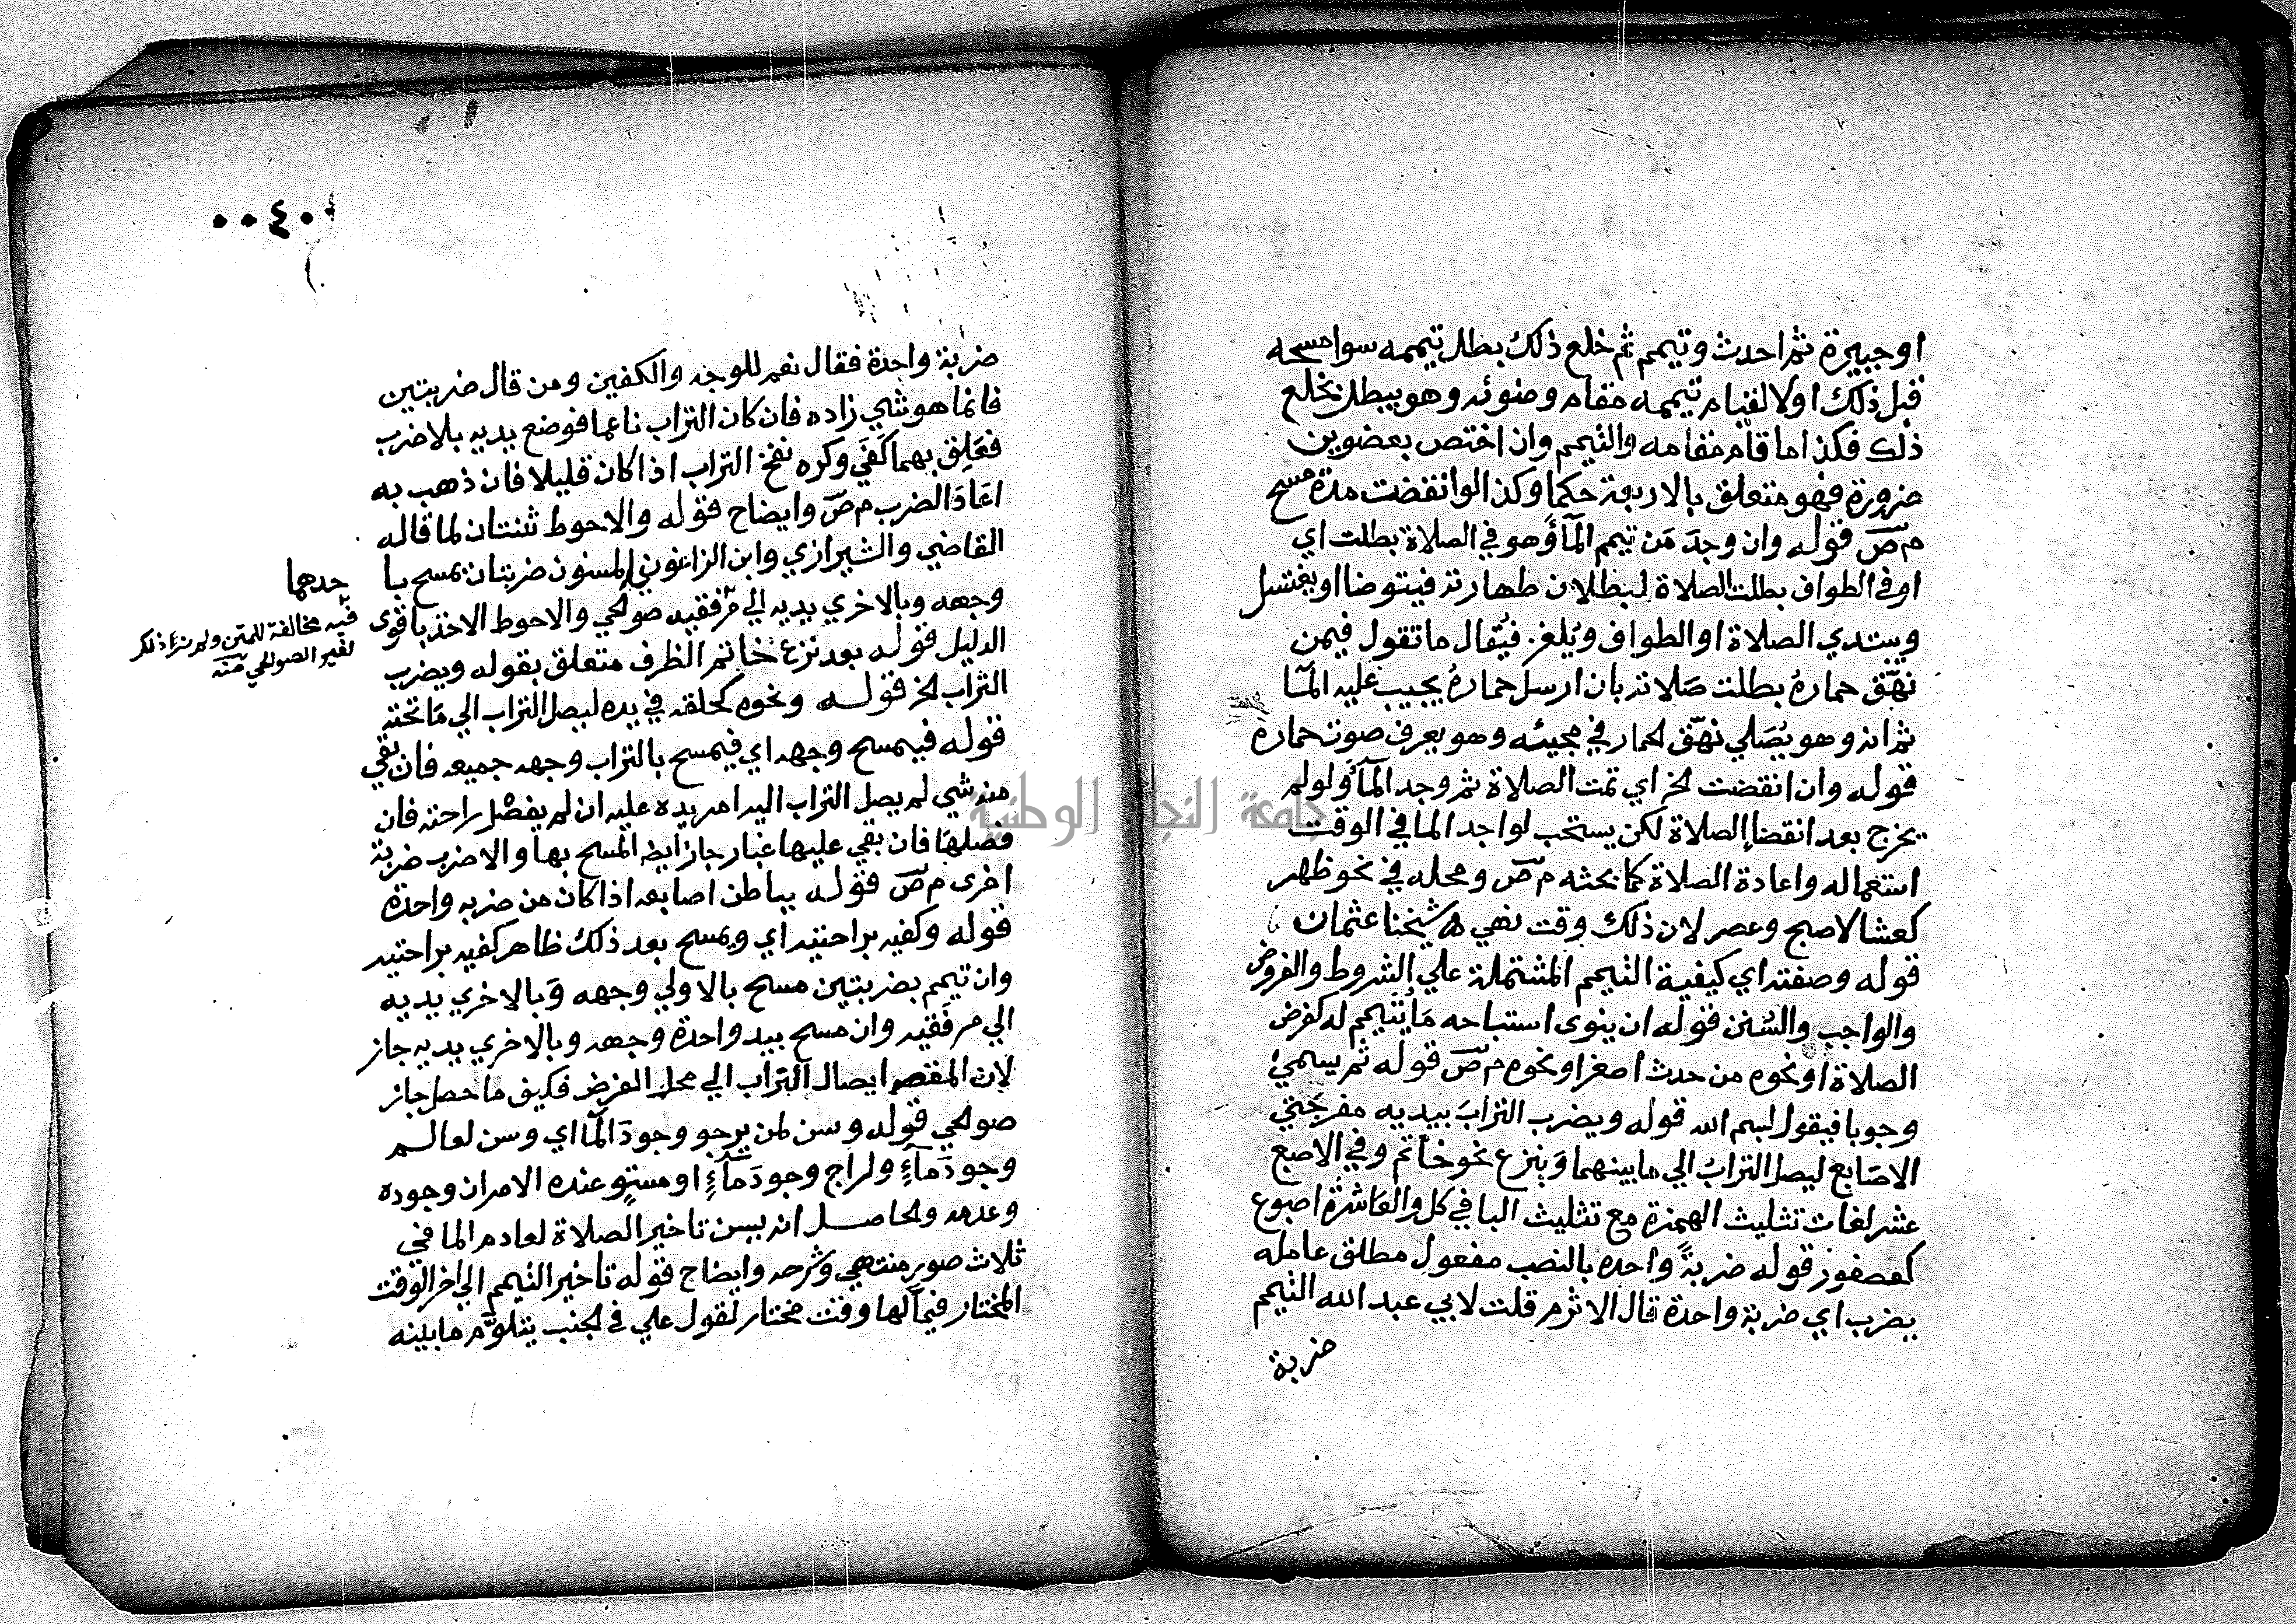 او جبيرة ثم احدث وتيمم ثم خلع ذلك بطل تيممه سوا مسحه
قبل ذلك اولا لقيام تيممه مقام وضوئه وهو يبطل بخلع
ذلك فكذا ما قام مقامه والتيمم وان اختص بعضوين
ضرورة فهو متعلق بالاربعة حكما وكذا لو انقضت مدة مسح
م ص قوله وان وجد من تيمم المآ وهو في الصلاة بطلت اي
او في الطواف بطلت الصلاة لبطلان طهارته فيتوضا او يغتسل
ويبتدي الصلاة او الطواف ويلغز فيقال ما تقول فيمن
نهّق حماره بطلت صلاته بان ارسل حماره يجيب عليه المآ
ثم انه وهو يصلي نهّق الحمار في مجيئه وهو يعرف صوت حماره
قوله وان انقضت الخ اي تمت الصلاة ثم وجد المآ ولو لم
يخرج بعد انقضا الصلاة لكن يستحب لواجد الما في الوقت
استعماله واعادة الصلاة كما بحثه م ص ومحله في نحو ظهر
كعشا لا صبح وعصر لان ذلك وقت نهي اه شيخنا عثمان
قوله وصفته اي كيفية التيمم المشتملة علي الشروط والفروض
والواجب والسنن قوله ان ينوى استباحه ما يتيمم له كفرض
الصلاة او نحوه من حدث اصغر او نحوه م ص قوله ثم يسمي
وجوبا فيقول بسم الله قوله ويضرب التراب بيديه مفرجتي
الاصابع ليصل التراب الي ما بينهما وينزع نحو خاتم وفي الاصبع
عشر لغات تثليث الهمزة مع تثليث البا في كل والعاشرة اصبوع
كعصفور قوله ضربةً واحده بالنصب مفعول مطلق عامله
يضرب اي ضربة واحدة قال الاثرم قلت لابي عبد الله التيمم
ضربة
٠٠٤٠
ضربة واحدة فقال نعم للوجه والكفين ومن قال ضربتين
فانما هو شي زاده فان كان التراب ناعما فوضع يديه بلا ضرب
فعلق بهما كفي وكره نفخ التراب اذا كان قليلا فان ذهب به
اعاد الضرب م ص وايضاح قوله والاحوط ثنتان لما قاله
القاضي والشيرازي وابن الزاغوني المسنون ضربتان يمسح با
حدهما
وجهه وبالاخري يديه الي مرفقيه صوالحي والاحوط الاخذ باقوى
فيه مخالفة للمتن ولم نر ذلك
لغير الصوالحي منه
الدليل قوله بعد نزع خاتم الظرف متعلق بقوله ويضرب
التراب الخ قوله ونحوه كحلقه في يده ليصل التراب الي ما تحته
قوله فيمسح وجهه اي فيمسح بالتراب وجهه جميعه فان بقي
منه شي لم يصل التراب اليه امر يده عليه ان لم يفصل راحته فان
فصلها فان بقي عليها غبار جاز ايضا المسح بها والا ضرب ضربة
اخرى م ص قوله بباطن اصابعه اذا كان من ضربه واحدة
قوله وكفيه براحتيه اي ويمسح بعد ذلك ظاهر كفيه براحتيه
وان تيمم بضربتين مسح بالاولي وجهه وبالاخري يديه
الي مرفقيه وان مسح بيد واحدة وجهه وبالاخري يديه جاز
لان المقصر ايصال التراب الي محل الفرض فكيف ما حصل جاز
صوالحي قوله وسن لمن يرجو وجود المآ اي وسن لعالم
وجود مآءٍ ولراج وجود مآءٍ او مستوٍ عنده الامران وجوده
وعدمه والحاصل انه يسن تاخير الصلاة لعادم الما في
ثلاث صور منتهي وشرحه وايضاح قوله تاخير التيمم الي اخر الوقت
المختار فيما لها وقت مختار لقول علي في الجنب يتلوّم ما بينه
جامعة النجاح الوطنية